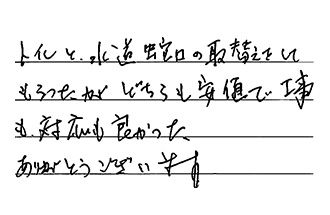 トイレと、水道蛇口の取替をして
もらったがどちらも安価で工事
も対応も良かった、
ありがとうございます